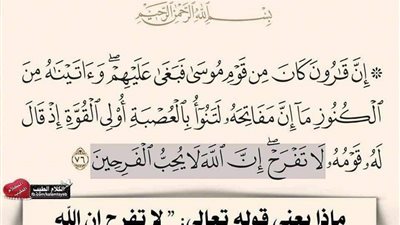 بِسْمِ اللَّهِ الرَّحْمَٰنِ الرَّحِيمِ
۞ إِنَّ قَٰرُونَ كَانَ مِن قَوْمِ مُوسَىٰ فَبَغَىٰ عَلَيْهِمْ ۖ وَءَاتَيْنَٰهُ مِنَ
ٱلْكُنُوزِ مَآ إِنَّ مَفَاتِحَهُۥ لَتَنُوٓأُ بِٱلْعُصْبَةِ أُو۟لِى ٱلْقُوَّةِ إِذْ قَالَ
لَهُۥ قَوْمُهُۥ لَا تَفْرَحْ ۖ إِنَّ ٱللَّهَ لَا يُحِبُّ ٱلْفَرِحِينَ ٧٦
الكلام الطيب
fb.com/kalemtayeb
ماذا يعني قوله تعالى: " لا تفرح إن الله